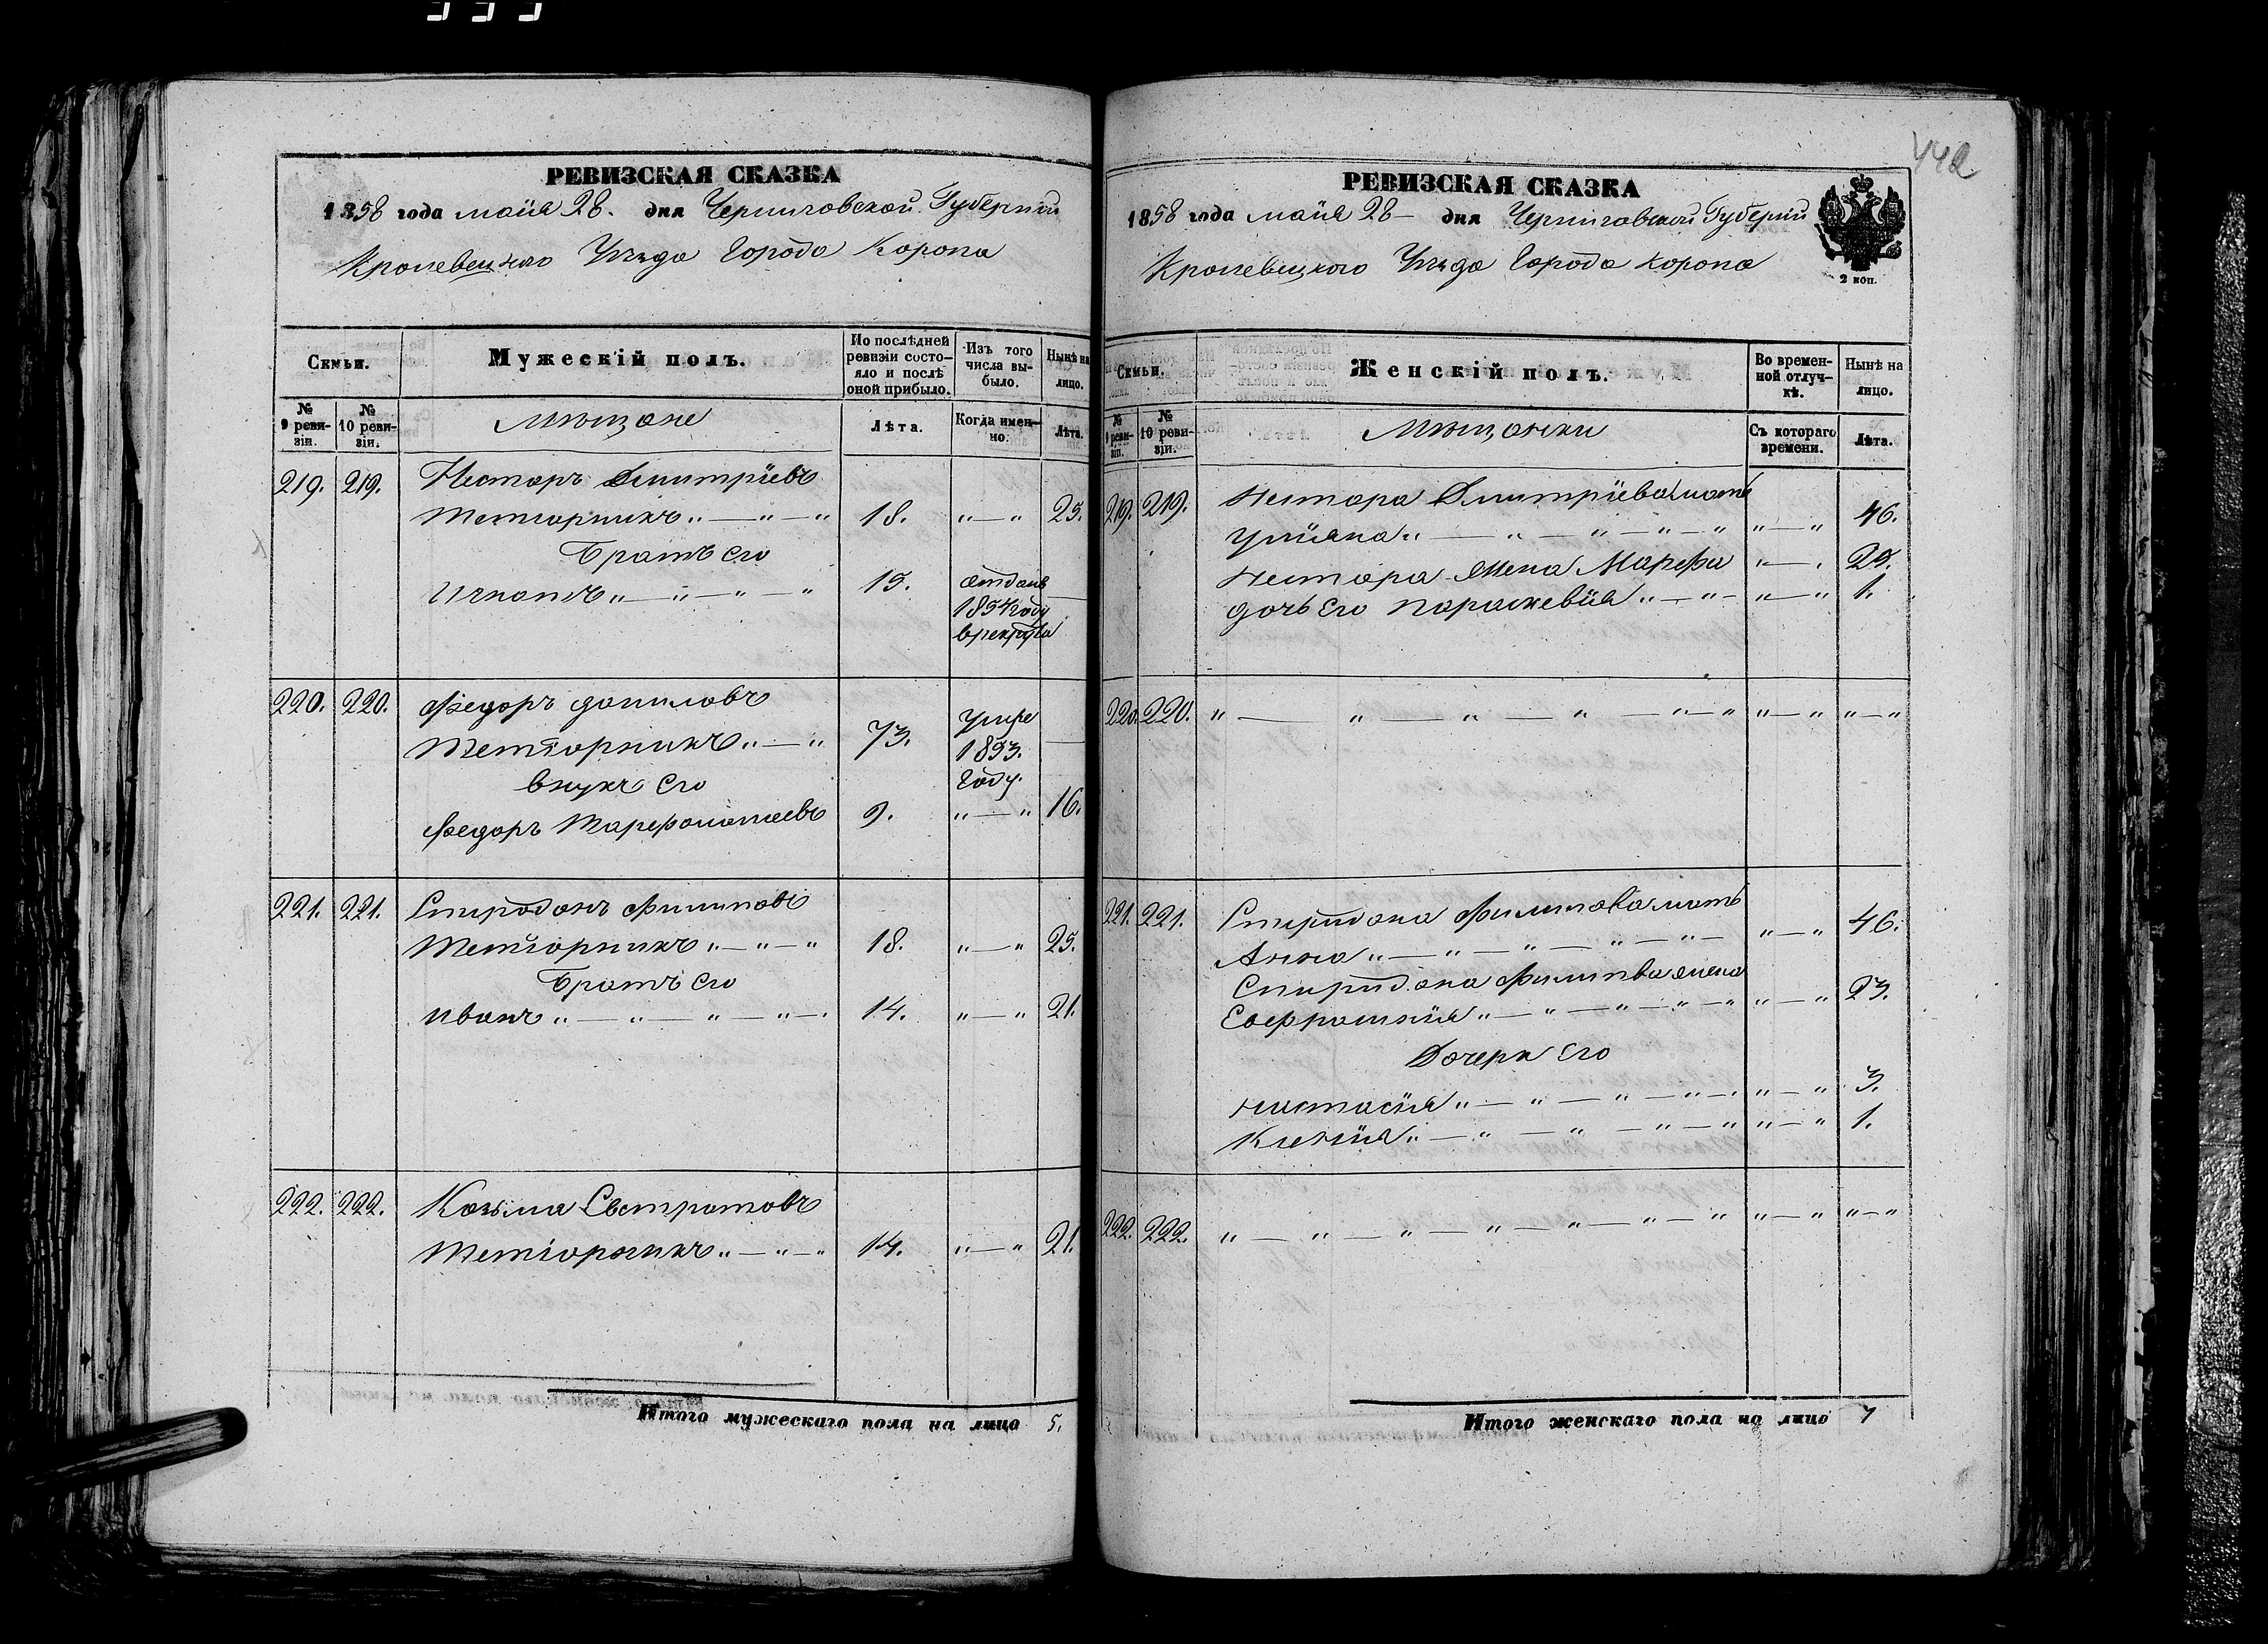 442
РЕВИЗСКАЯ СКАЗКА
1858 года маія 28. дня Черниговской Губерніи
Кролевецкаго Уѣзда Города Коропа
Семьи.
Мужескій полъ.
По послѣдней ревизіи состояло и послѣ оной прибыло.
Изъ того числа выбыло.
Нынѣ на лицо.
№ 9 ревизіи.
№ 10 ревизіи.
Мѣщане
Лѣта.
Когда именно.
Лѣта.
219. 219. Несторъ Дмитріевъ
Тетіорникъ „ — „ — „ 18. „ — „ 25.
Братъ его
Игнатъ „ — „ — „ — „ 15. отданъ 1854 году в рекруты —
220. 220. Федоръ Даниловъ
Тетіорникъ „ — „ 73. умре 1853. году. —
внукъ его
Федоръ 9. „ — „ 16.
221. 221. Спиридонъ Филиповъ
Тетіорникъ „ — „ — „ 18. „ — „ 25.
Братъ его
Иванъ „ — „ — „ — „ — . 14. „ — „ 21.
222. 222. Козьма Евстратовъ
Тетіорникъ „ — „ — „ 14. „ — „ 21.
Итого мужескаго пола на лицо 5.
РЕВИЗСКАЯ СКАЗКА
1858 года маія 28 — дня Черниговской Губерніи
Кролевецкого Уѣзда Города Коропа
2 коп.
Семьи.
Женскій полъ.
Во временной отлучкѣ.
Нынѣ на лицо.
№ 9 ревизіи.
№ 10 ревизіи.
Мѣщанки
Съ котораго времени.
Лѣта.
219. 219. Нестора Дмитріева мать
Уліяна „ — „ — „ — „ — „ „ — „ 46.
Нестора Жена Марфа „ — „ 25.
дочь Его Параскевія „ — „ — „ — „ 1.
220. 220. „ — „ — „ — „ — „ — „ „ — „ „ — „
221. 221. Спиридона Филипова мать
Анна „ — „ — „ — „ — „ — „ — „ 46.
Спиридона Филипва жена
Евфросинія „ — „ — „ — „ — „ „ — „ 23.
Дочери Его
Настасія „ — „ — „ — „ — . „ — „ 3.
Ксенія „ — „ — „ — „ — „ „ — „ 1.
222. 222. „ — „ — „ — „ — „ — „ — „ „ — „ „ — „
Итого женскаго пола на лицо 7